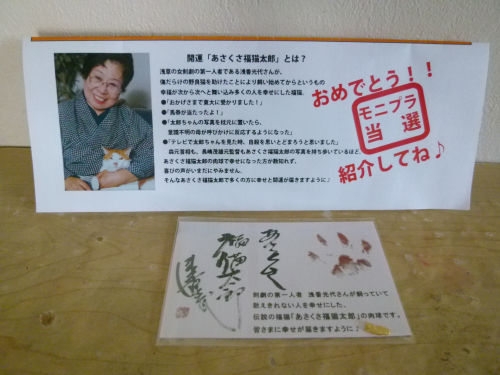 開運「あさくさ福猫太郎」とは？
浅草の女剣劇の第一人者である浅香光代さんが、
傷だらけの野良猫を助けたことにより飼い始めてからというもの
幸福が次から次へと舞い込み多くの人を幸せにした福猫。
●「おかげさまで東大に受かりました！」
●「馬券が当たったよ！」
●「太郎ちゃんの写真を枕元に置いたら、
意識不明の母が呼びかけに反応するようになった」
●「テレビで太郎ちゃんを見た時、自殺を思いとどまろうと思いました」
森元首相も、長嶋茂雄元監督もあさくさ福猫太郎の写真を持ち歩いているほど、
あさくさ福猫太郎の肉球で幸せになった方が数知れず、
喜びの声がいまだにやみません。
そんなあさくさ福猫太郎で多くの方に幸せと開運が届きますように♪
おめでとう！！
モニプラ
当選
紹介してね♪
あさくさ
福猫太郎
剣劇の第一人者　浅香光代さんが飼っていて
数えきれない人を幸せにした、
伝説の福猫「あさくさ福猫太郎」の肉球です。
皆さまに幸せが届きますように♪